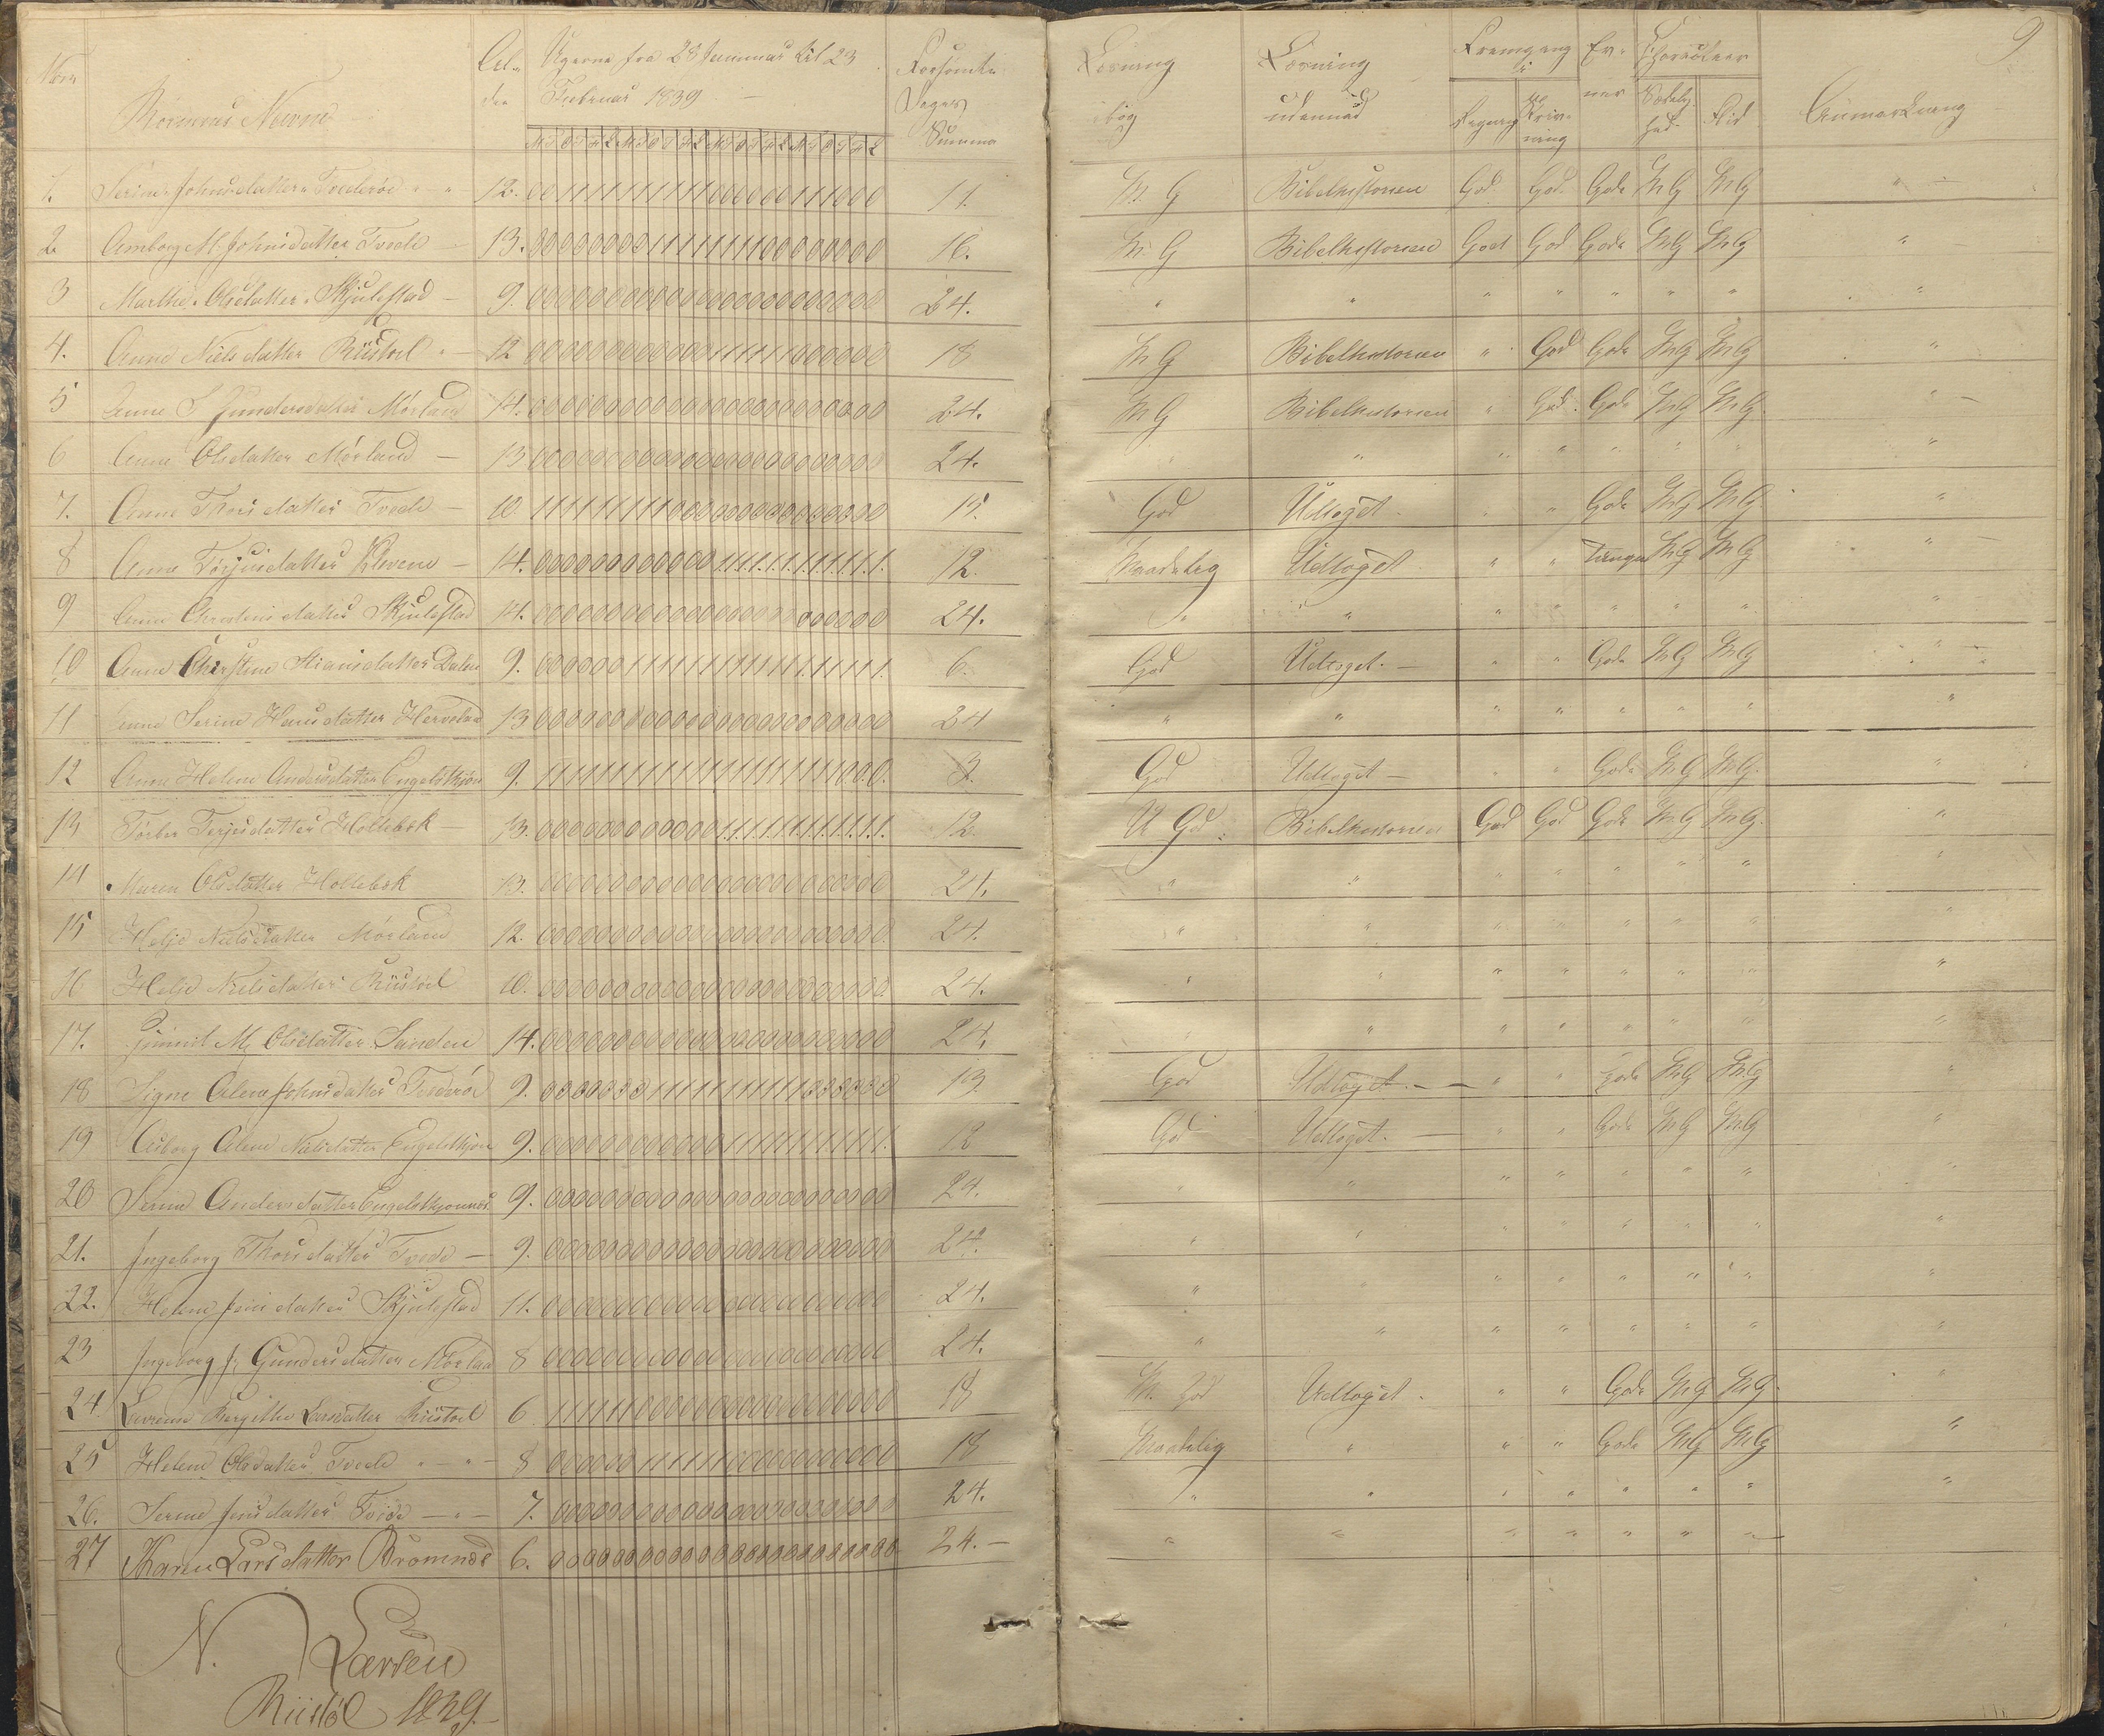 9
Num Børnenes Navne Al- Ugerne fra 28 Januar til 23 Forsømte Læsning Læsning Fremgang Ev- Charakteer Anmærkning
der Februar 1839 Dages i bog udenad i ner
Summa Regning Skriv- Sædelig- Flid
ning hed
M T O T F L M T O T F L M T O T F L M T O T F L
1. Serine Johnsdatter Tvederøe 12. 001111111111000000111000 11. M. G Bibelhistorien God God Gode M G M G "
2 Amborg M. Johnsdatter Tvede 13. 000000001111111100000000 16. M. G Bibelhistorien God God Gode M G M G "
3 Marthe Olsdatter Skjulestad 9. 000000000000000000000000 24. " " " " " " " "
4. Anne Nielsdatter Riistöel 12 000000000000111111000000 18 M G Bibelhistorien " God Gode M G M G "
5 Anne S Gundersdatter Mörland 14. 000000000000000000000000 24. M G Bibelhistorien " God. Gode M G M G "
6 Anne Olsdatter Mörland 13 000000000000000000000000 24. " " " " " " " "
7. Anne Thorsdatter Tvede 10 111111111000000000000000 15. God Udtoget " " Gode M G M G "
8 Anne Törjusdatter Klevene 14. 000000000000111111111111 12. Maadelig Udtoget " " Tunge M G M G "
9 Anne Christensdatter Skjulestad 14. 000000000000000000000000 24. " " " " " " " "
10 Anne Christine Stiansdatter Dalene 9. 000000111111111111111111 6. God Udtoget. " " Gode M G M G "
11 Anne Serine Hansdatter Herveland 13 000000000000000000000000 24 " " " " " " " "
12 Anne Helene Andersdatter Engelskjøn 9. 111111111111111111111000. 3. God Udtoget " " Gode M G M G. "
13 Törber Terjesdatter Hollebek 13. 000000000000111111111111 12. U God. Bibelhistorien God God Gode M. G M G. "
14 Maren Olsdatter Hollebek 13. 000000000000000000000000 24. " " " " " " " "
15 Helje Nielsdatter Mörland 12. 000000000000000000000000 24. " " " " " " " "
16 Helje Nielsdatter Riistöel 10. 000000000000000000000000 24. " " " " " " " "
17. Gunnil M. Olsdatter Sanden 14. 000000000000000000000000 24. " " " " " " " "
18 Signe Alene Johnsdatter Tvederöe 9. 13 God Udtoget. " " Gode M G M G "
19 Asborg Alene Nielsdatter Engelskjøn 9. 000000000000111111111111. 12 God Udtoget. " " Gode M G M G "
20 Serine Andersdatter Engelskjønnes 9. 000000000000000000000000 24. " " " " " " " "
21. Ingeborg Thorsdatter Tvede 9. 000000000000000000000000 24. " " " " " " " "
22. Helene Jensdatter Skjulestad 11. 000000000000000000000000 24. " " " " " " " "
23 Ingeborg J. Gundersdatter Mörland 8 000000000000000000000000 24. " " " " " " " "
24 Laurense Birgithe Larsdatter Riistöel 6 111111000000000000000000 18 M. God Udtoget. " " Gode M G M G. "
25 Helene Olsdatter Tvede 8 000000111111000000000000 18 Maadelig " " " Gode M G M G "
26. Serine Jensdatter Tvede 7. 000000000000000000000000 24. " " " " " " " "
27 Karen Larsdatter Bromnes 6. 000000000000000000000000 24. " " " " " " "
N. Larsen
Riistöl 1839.